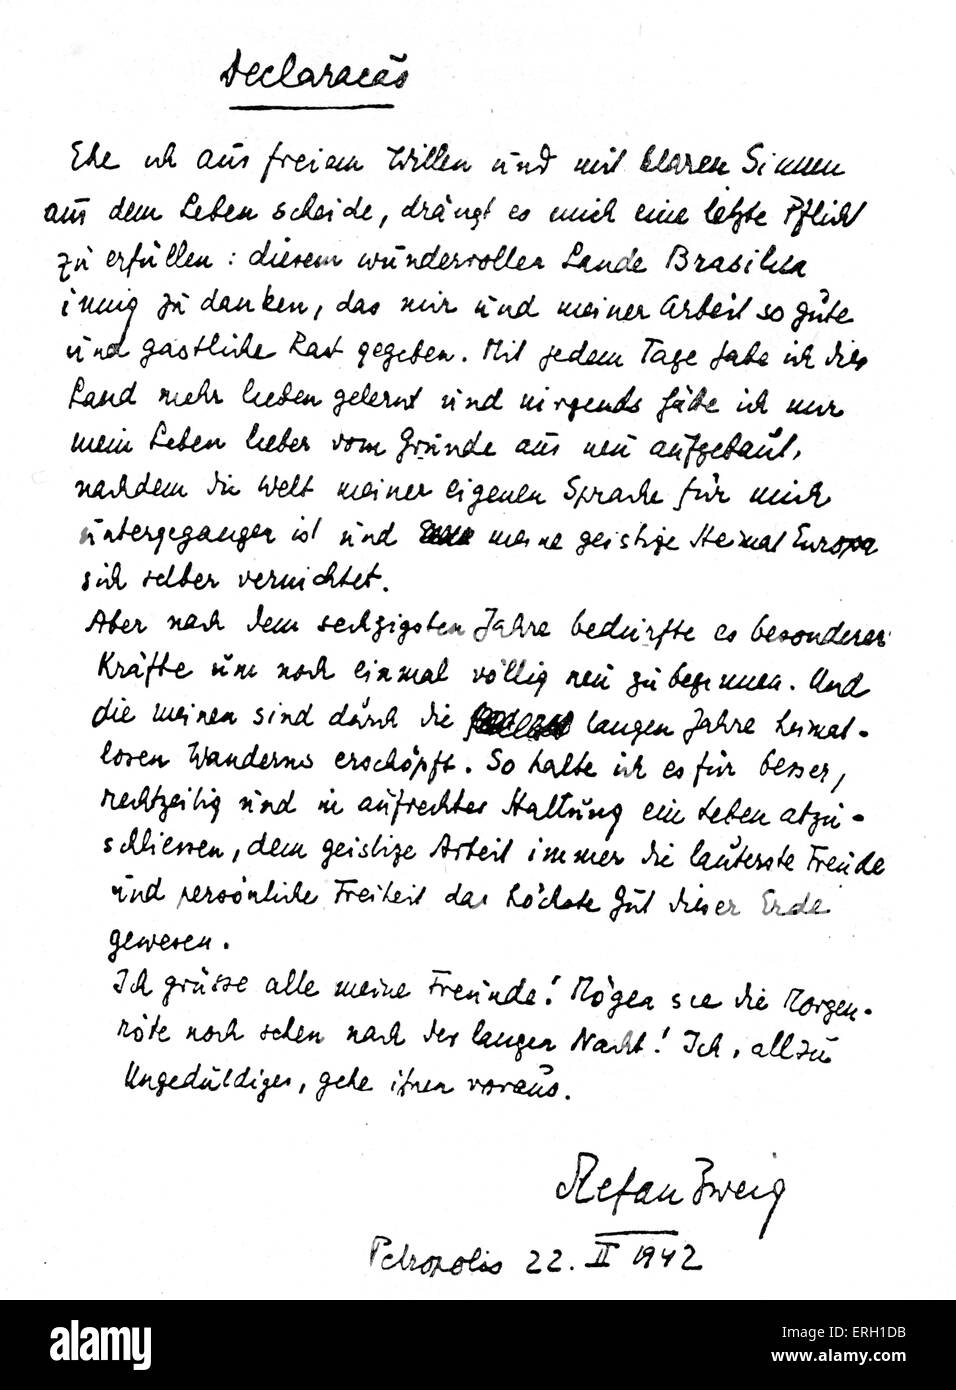 Declaracão
Ehe ich aus freiem Willen und mit klaren Sinnen
aus dem Leben scheide, drängt es mich eine letzte Pflicht
zu erfüllen: diesem wundervollen Lande Brasilien
innig zu danken, das mir und meiner Arbeit so gute
und gastliche Rast gegeben. Mit jedem Tage habe ich dies
Land mehr lieben gelernt und nirgends hätte ich mir
mein Leben lieber vom Grunde aus neu aufgebaut,
nachdem die Welt meiner eigenen Sprache für mich
untergegangen ist und meine geistige Heimat Europa
sich selber vernichtet.
Aber nach dem sechzigsten Jahre bedürfte es besonderer
Kräfte um noch einmal völlig neu zu beginnen. Und
die meinen sind durch die langen Jahre heimat-
losen Wanderns erschöpft. So halte ich es für besser,
rechtzeitig und in aufrechter Haltung ein Leben abzu-
schliessen, dem geistige Arbeit immer die lauterste Freude
und persönliche Freiheit das höchste Gut dieser Erde
gewesen.
Ich grüsse alle meine Freunde! Mögen sie die Morgen-
röte noch sehen nach der langen Nacht! Ich, allzu
Ungeduldiger, gehe ihnen voraus.
Stefan Zweig
Petropolis 22. II 1942
alamy stock photo
alamy
ERH1DB
www.alamy.com